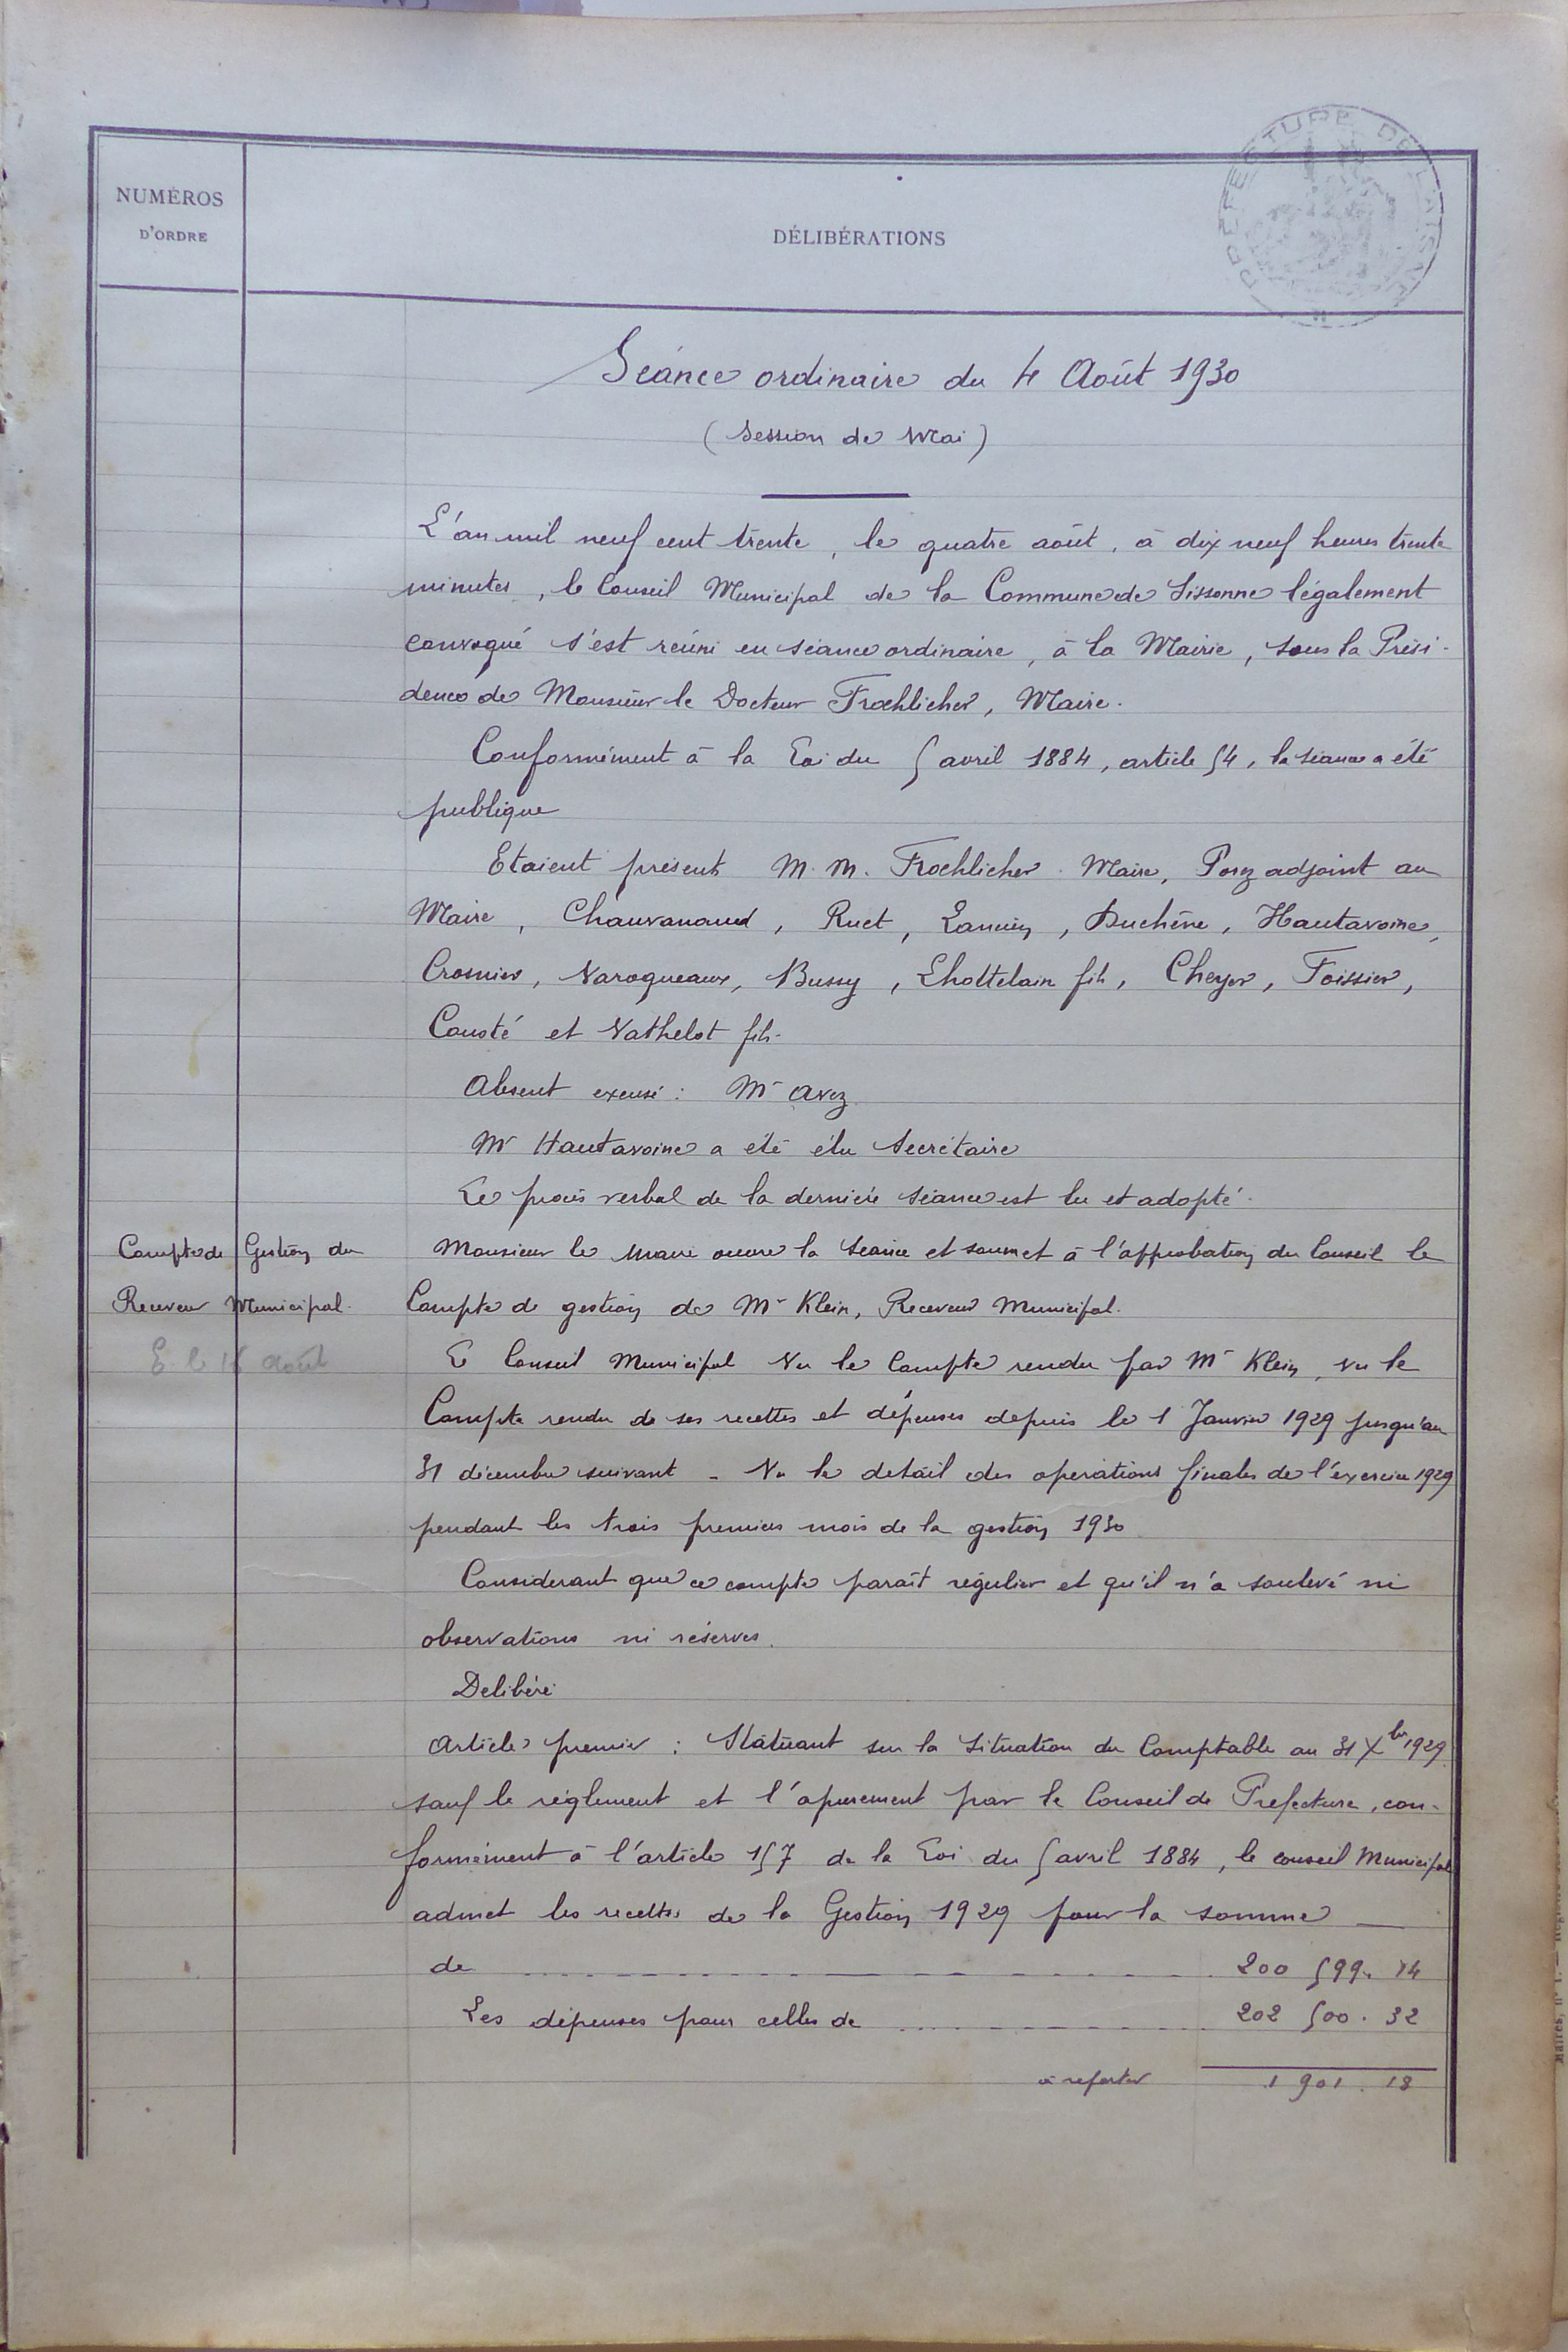 NUMÉROS
D'ORDRE
DÉLIBÉRATIONS
PRÉFECTURE DE L'AISNE
Séance ordinaire du 4 Août 1930
(Session de Mai)
L'an mil neuf cent trente, le quatre août, à dix neuf heures trente
minutes, le Conseil Municipal de la Commune de Sissonne légalement
convoqué s'est réuni en séance ordinaire, à la Mairie, sous la Prési-
dence de Monsieur le Docteur Froehlicher, Maire.
Conformément à la Loi du 5 avril 1884, article 54, la séance a été
publique
Etaient présents M. M. Froehlicher Maire, adjoint au
Maire, Chauvanaud, Ruet, Duchêne, Hautavoine,
Crosnier, Naroqueaux, Bussy, Lhottelain fils, Cheyer, Foissier,
Cousté et Vathelot fils.
Absent excusé : Mr Avez
Mr Hautavoine a été élu Secrétaire
Le procès verbal de la dernière séance est lu et adopté.
Compte de Gestion du
Receveur Municipal.
août
Monsieur le Maire ouvre la séance et soumet à l'approbation du Conseil le
Compte de gestion de Mr Klein, Receveur Municipal.
Le Conseil Municipal Vu le Compte rendu par Mr Klein, vu le
Compte rendu de ses recettes et dépenses depuis le 1 Janvier 1929 jusqu'au
31 décembre suivant - Vu le détail des opérations finales de l'exercice 1929
pendant les trois premiers mois de la gestion 1930
Considerant que ce compte paraît régulier et qu'il n'a soulevé ni
observations ni réserves.
Delibère
Article premier : Statuant sur la situation du Comptable au 31 Xbre 1929
sauf le règlement et l'apurement par le Conseil de Prefecture, con-
formément à l'article 157 de la Loi du 5 avril 1884, le conseil Municipal
admet les recettes de la Gestion 1929 pour la somme
de 200 599. 14
Les dépenses pour celles de 202 500. 32
à reporter 1 901. 18